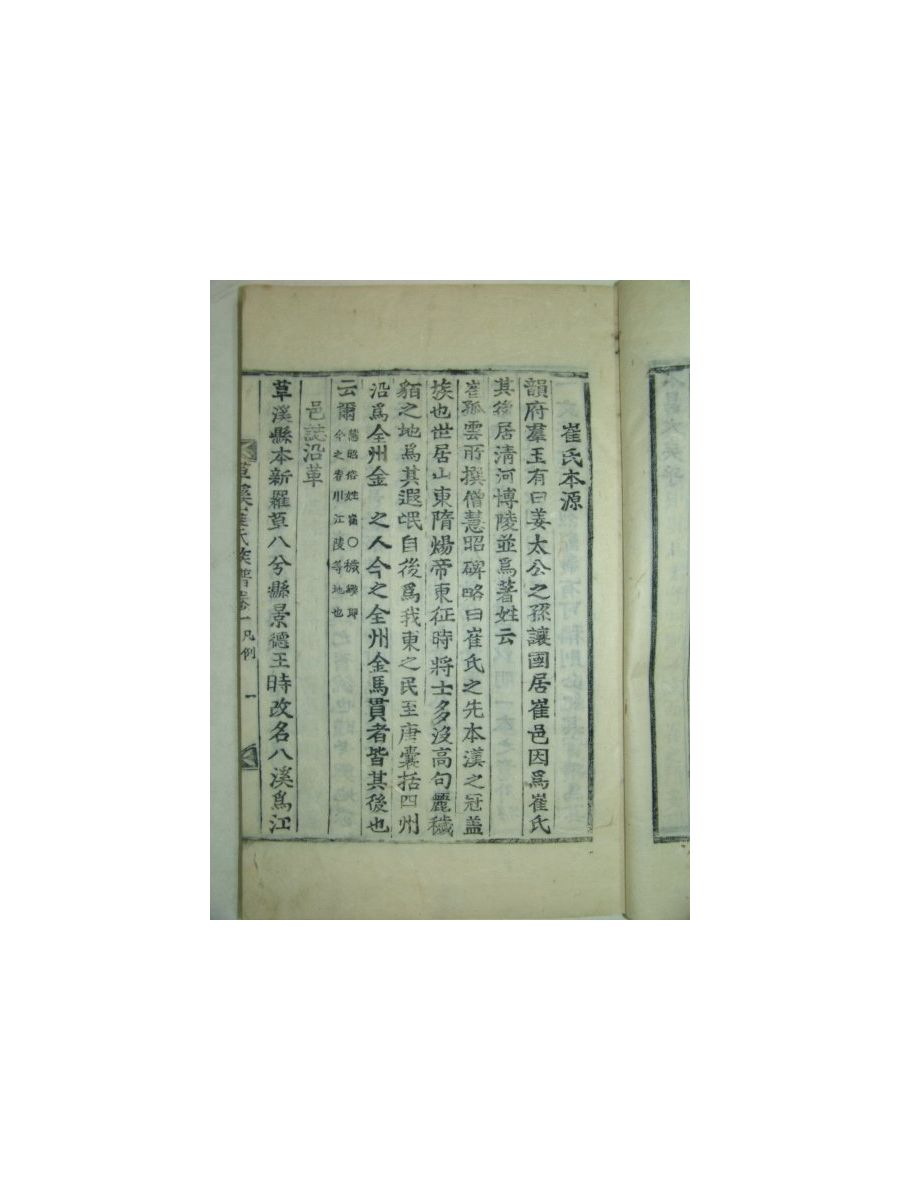 崔氏本源
韻府羣玉有曰姜太公之孫讓國居崔邑因爲崔氏
其後居清河博陵並爲著姓云
崔孤雲所撰僧慧昭碑略曰崔氏之先本漢之冠盖
族也世居山東隋煬帝東征時將士多沒高句麗穢
貊之地爲其遐氓自後爲我東之民至唐囊括四州
沿爲全州金 之人今之全州金馬貫者皆其後也
云爾
慧昭俗姓崔〇穢貊即
今之春川江陵等地也
邑誌沿革
草溪縣本新羅草八兮縣景德王時改名八溪爲江
草溪崔氏族譜卷一凡例 一